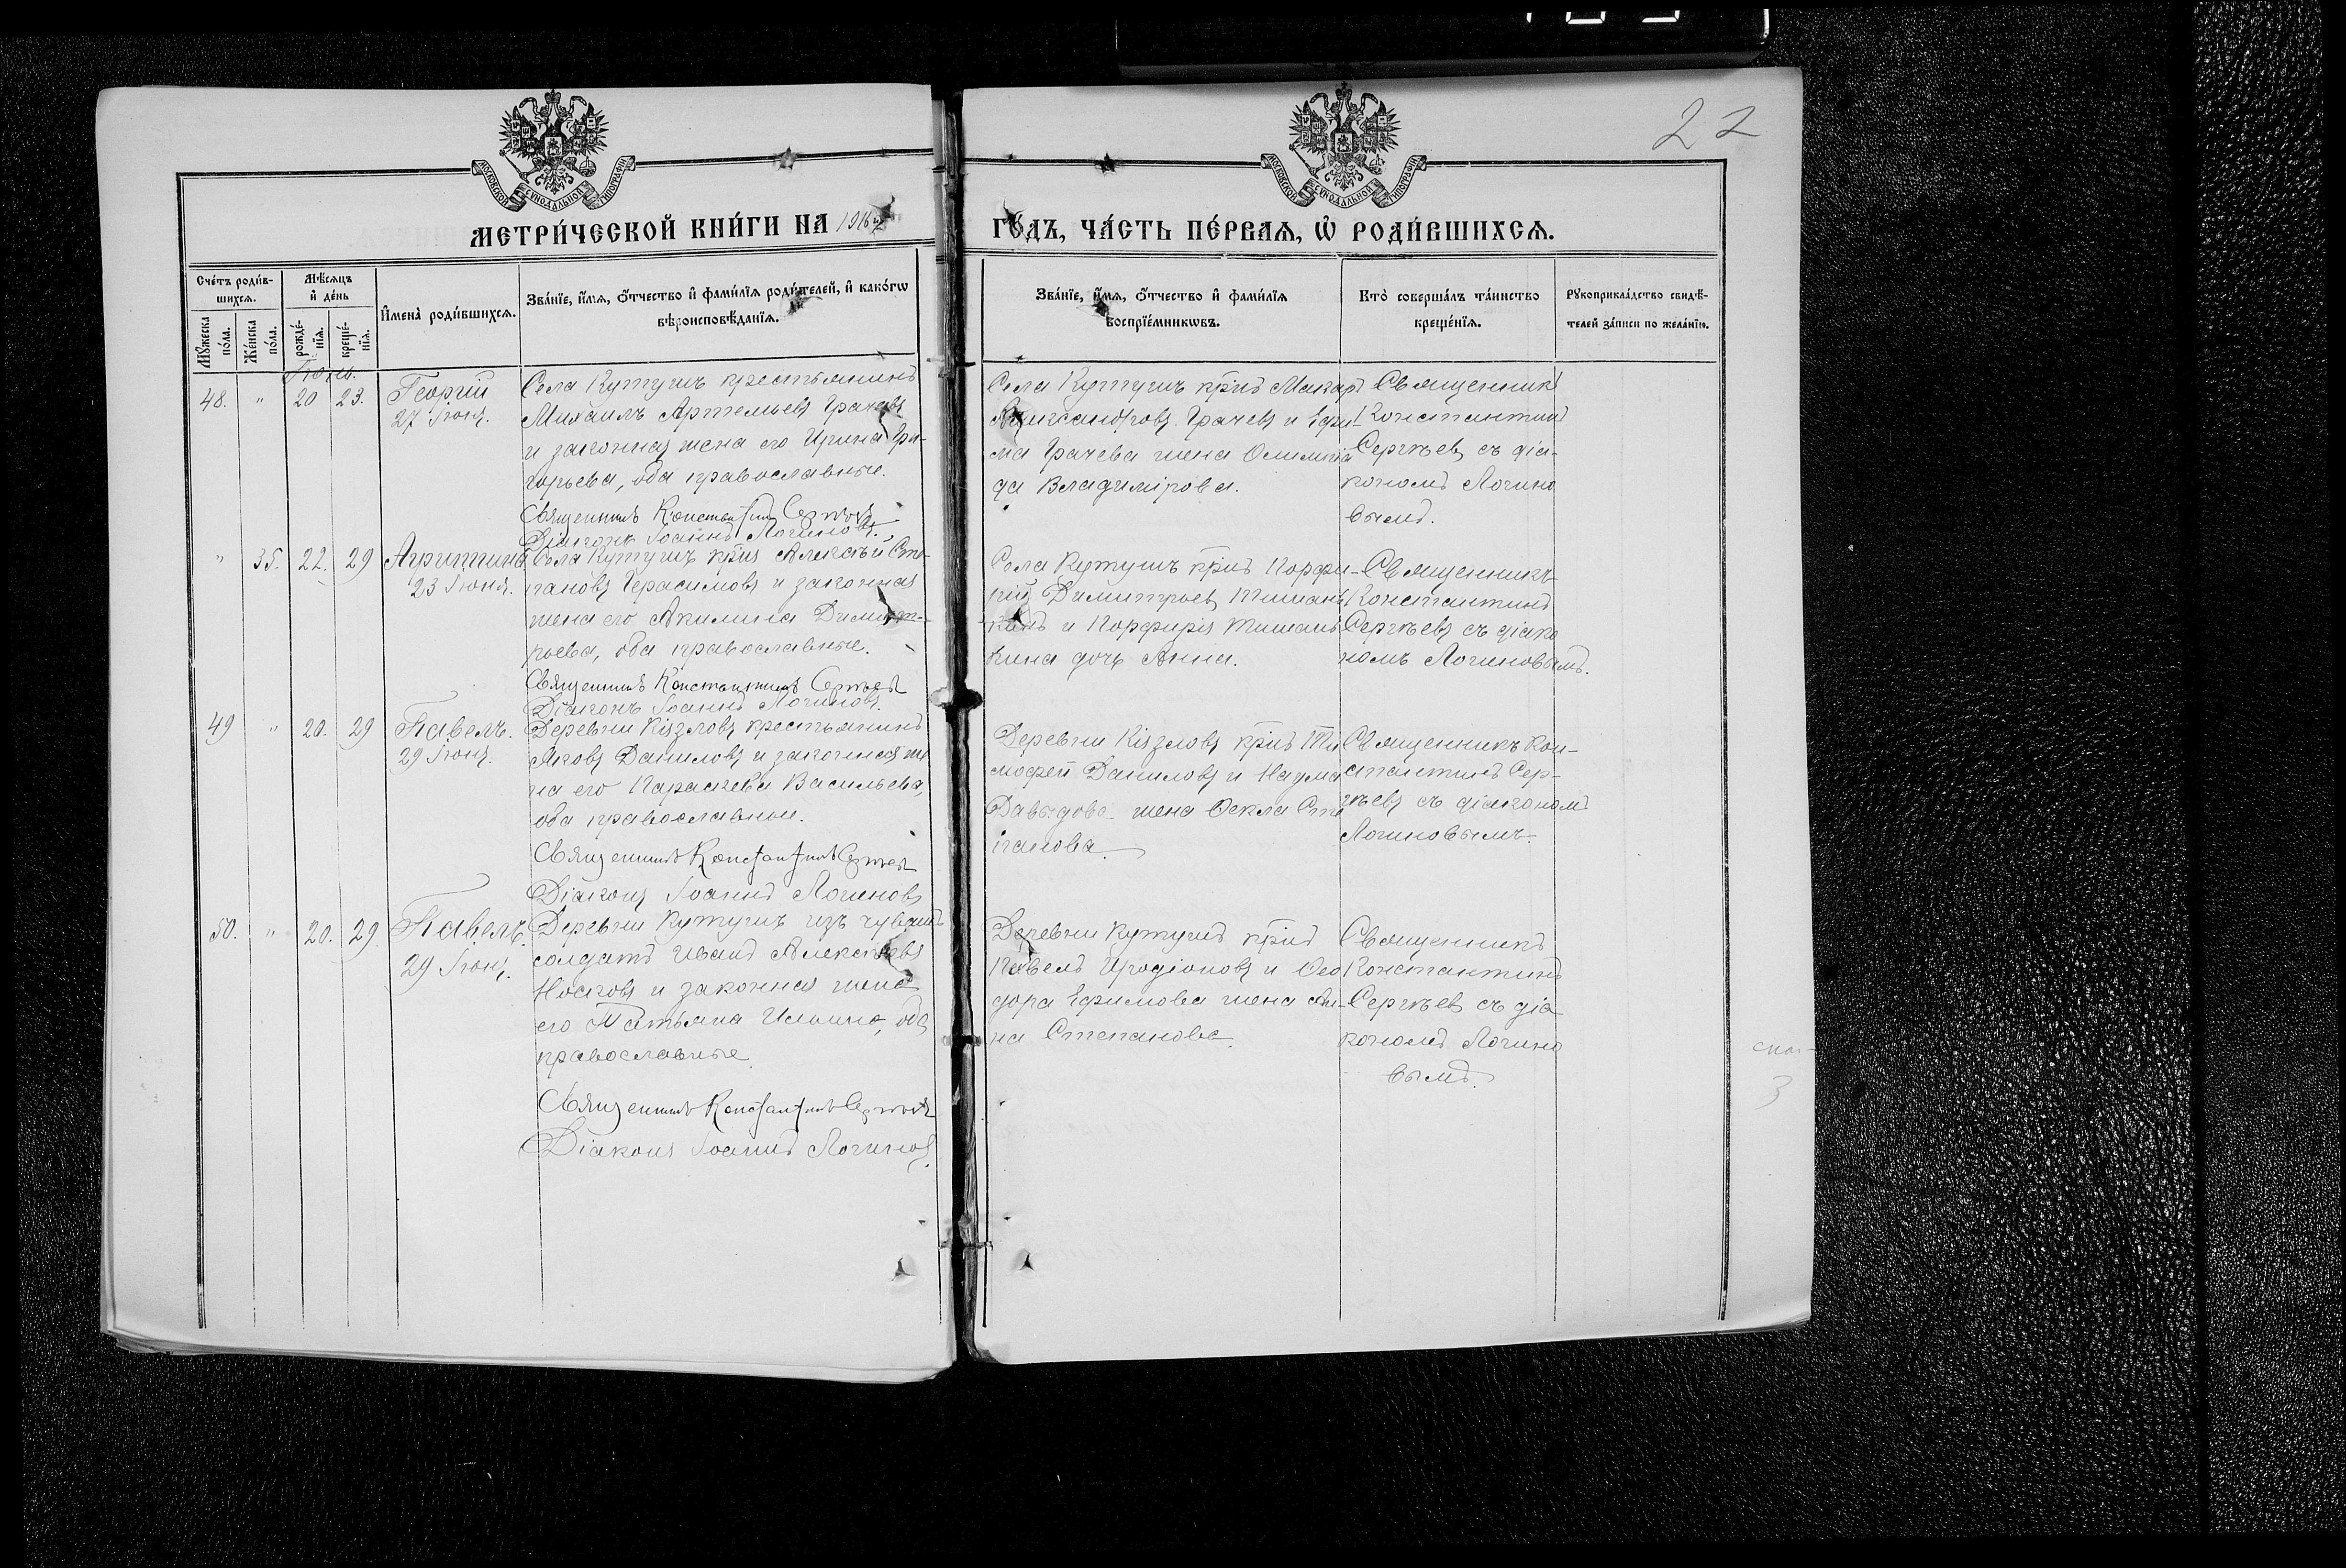 22
МЕТРИ́ЧЕСКОЙ КНИ́ГИ НА 1916
ГО́ДЪ, ЧА́СТЬ ПЕ́РВАЯ, Ѽ РОДИ́ВШИХСЯ.
Сче́тъ роди́в-
шихся.
Мѣ́сяцъ
и де́нь
Му́жеска
по́ла.
Же́нска
по́ла.
рожде́-
нїя.
креще́-
нїя.
Имена̀ роди́вшихся.
Зва́нїе, и́мя, о́тчество и фами́лїя роди́телей, и како́гѡ
вѣроисповѣ́данїя.
Зва́нїе, и́мя, о́тчество и фами́лїя
воспрїе́мникѡвъ.
Кто̀ соверша́лъ та́инство
креще́нїя.
Рꙋкоприкла́дство свидѣ́-
телей за́писи по жела́нїю.
Іюнь.
48. " 20 23.
Георгій
27 Іюня.
Села Кутушъ крестьянинъ
Михаилъ Артемьевъ Грачевъ
и законная жена его Ирина Гри-
горьева, оба православные.
Священникъ Константинъ Сергѣевъ
Діаконъ Іоаннъ Логиновъ.
Села Кутушъ кр̅нъ Макар
Александровъ Грачевъ и Ефи-
ма Грачева жена Олимпіа
да Владимірова.
Священникъ
Константинъ
Сергѣевъ съ діа-
кономъ Логино
вымъ.
" 35. 22. 29
Агриппина
23 Іюня.
Села Кутушъ кр̅нъ Алексѣй Сте-
пановъ Герасимовъ и законная
жена его Акилина Димит-
ріева, оба православные.
Священникъ Константинъ Сергѣевъ
Діаконъ Іоаннъ Логиновъ.
Села Кутушъ кр̅нъ Порфи-
рій Димитріевъ Тишан
кинъ и Порфирія Тишань
кина дочь Анна.
Священникъ
Константинъ
Сергѣевъ съ діако
номъ Логиновымъ.
49 " 20. 29
Павелъ.
29 Іюня.
Деревни Кізгловъ крестьянинъ
Яковъ Даниловъ и законная же
на его Параскева Васильева,
оба православные.
Священникъ Константинъ Сергѣевъ
Діаконъ Іоаннъ Логиновъ
Деревни Кізгловъ кр̅нъ Ти
мофей Даниловъ и Наума
Давыдова жена Ѳекла Сте
панова.
Священникъ Кон-
стантинъ Сер-
гѣевъ съ діакономъ
Логиновымъ.
50. " 20. 29
Павелъ.
29 Іюня.
Деревни Кутушъ изъ чувашъ
солдатъ Иванъ Алексѣевъ
Носковъ и законная жена
его Татьяна Ильина, оба
православные.
Священникъ Константинъ Сергѣевъ
Діаконъ Іоаннъ Логиновъ.
Деревни Кутушъ кр̅нъ
Павелъ Иродіоновъ и Ѳео
дора Ефимова жена Ан-
на Степанова.
Священникъ
Константинъ
Сергѣевъ съ діа
кономъ Логино
вымъ.
3